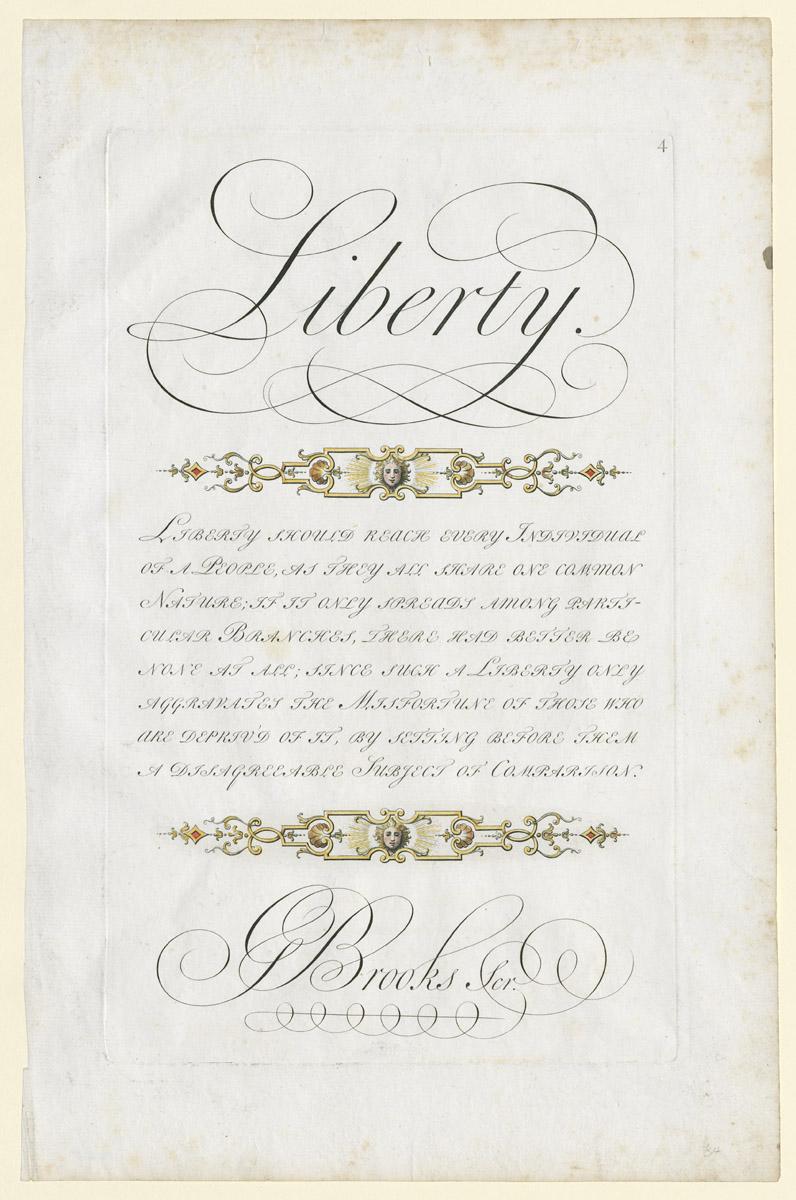 4
Liberty.
LIBERTY SHOULD REACH EVERY INDIVIDUAL
OF A PEOPLE, AS THEY ALL SHARE ONE COMMON
NATURE; IF IT ONLY SPREADS AMONG PARTI-
CULAR BRANCHES, THERE HAD BETTER BE
NONE AT ALL; SINCE SUCH A LIBERTY ONLY
AGGRAVATES THE MISFORTUNE OF THOSE WHO
ARE DEPRIV'D OF IT, BY SETTING BEFORE THEM
A DISAGREEABLE SUBJECT OF COMPARISON.
Brooks Scr.